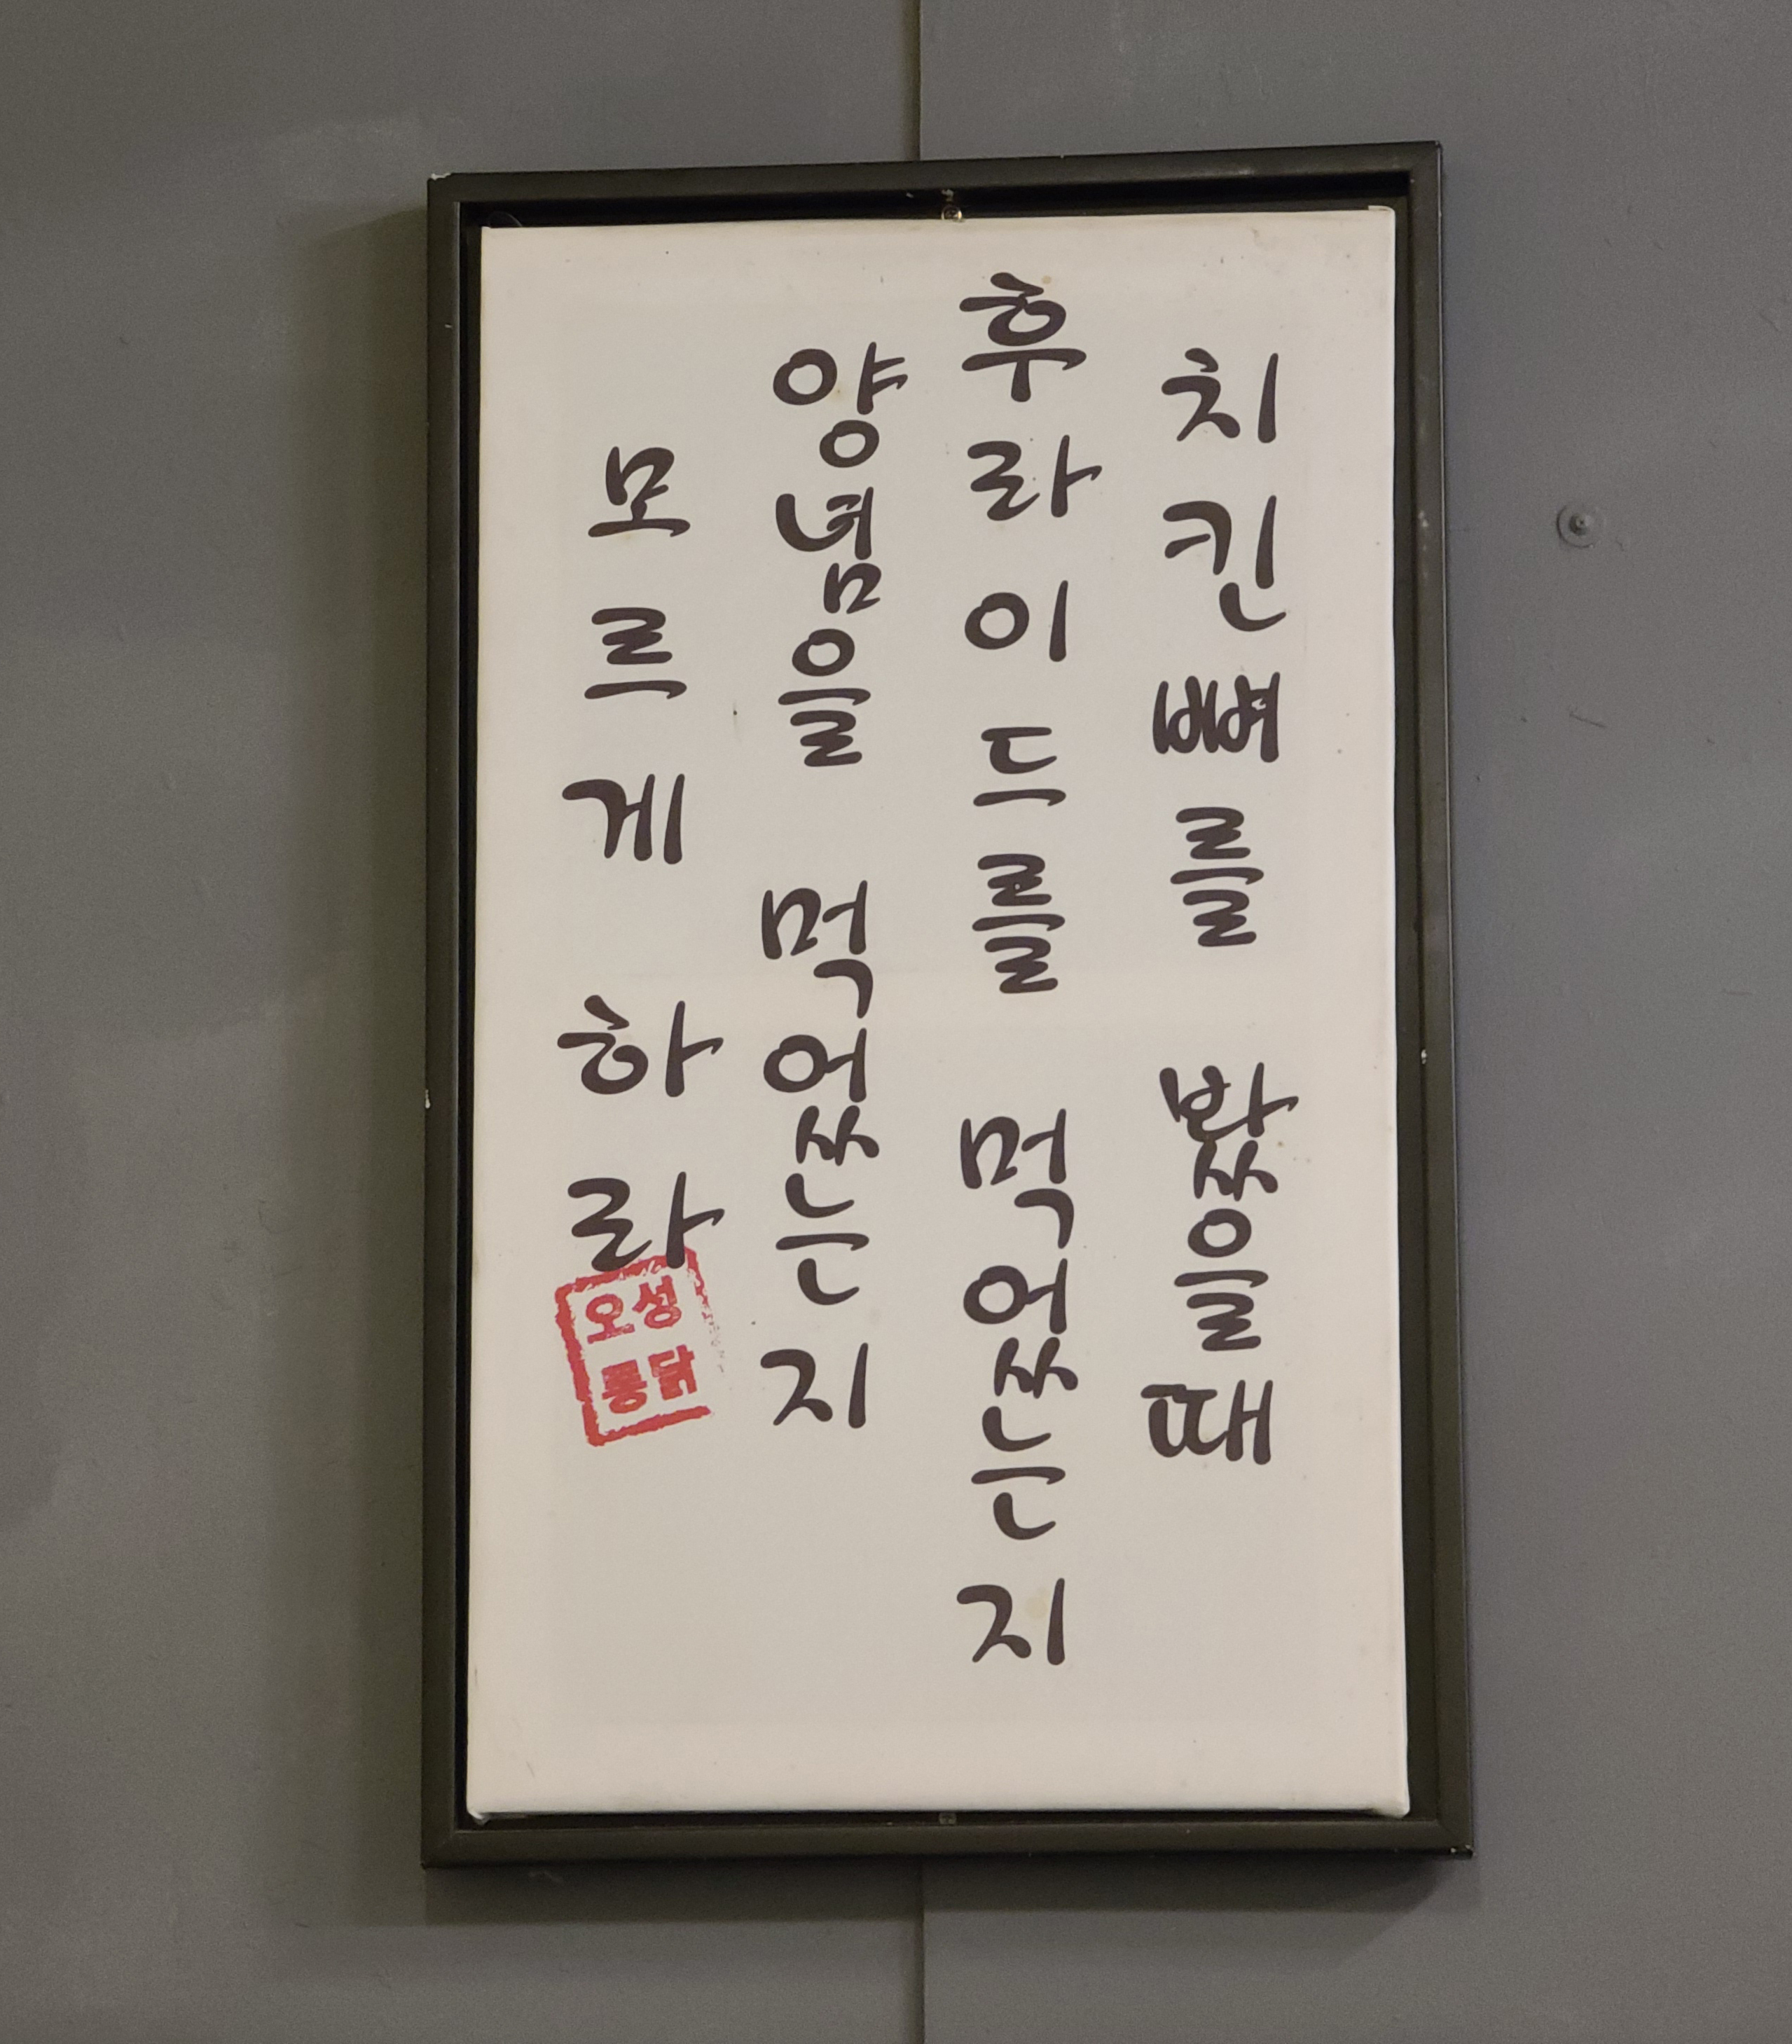 치킨뼈를 봤을때
후라이드를 먹었는지
양념을 먹었는지
모르게 하라
오성
통닭